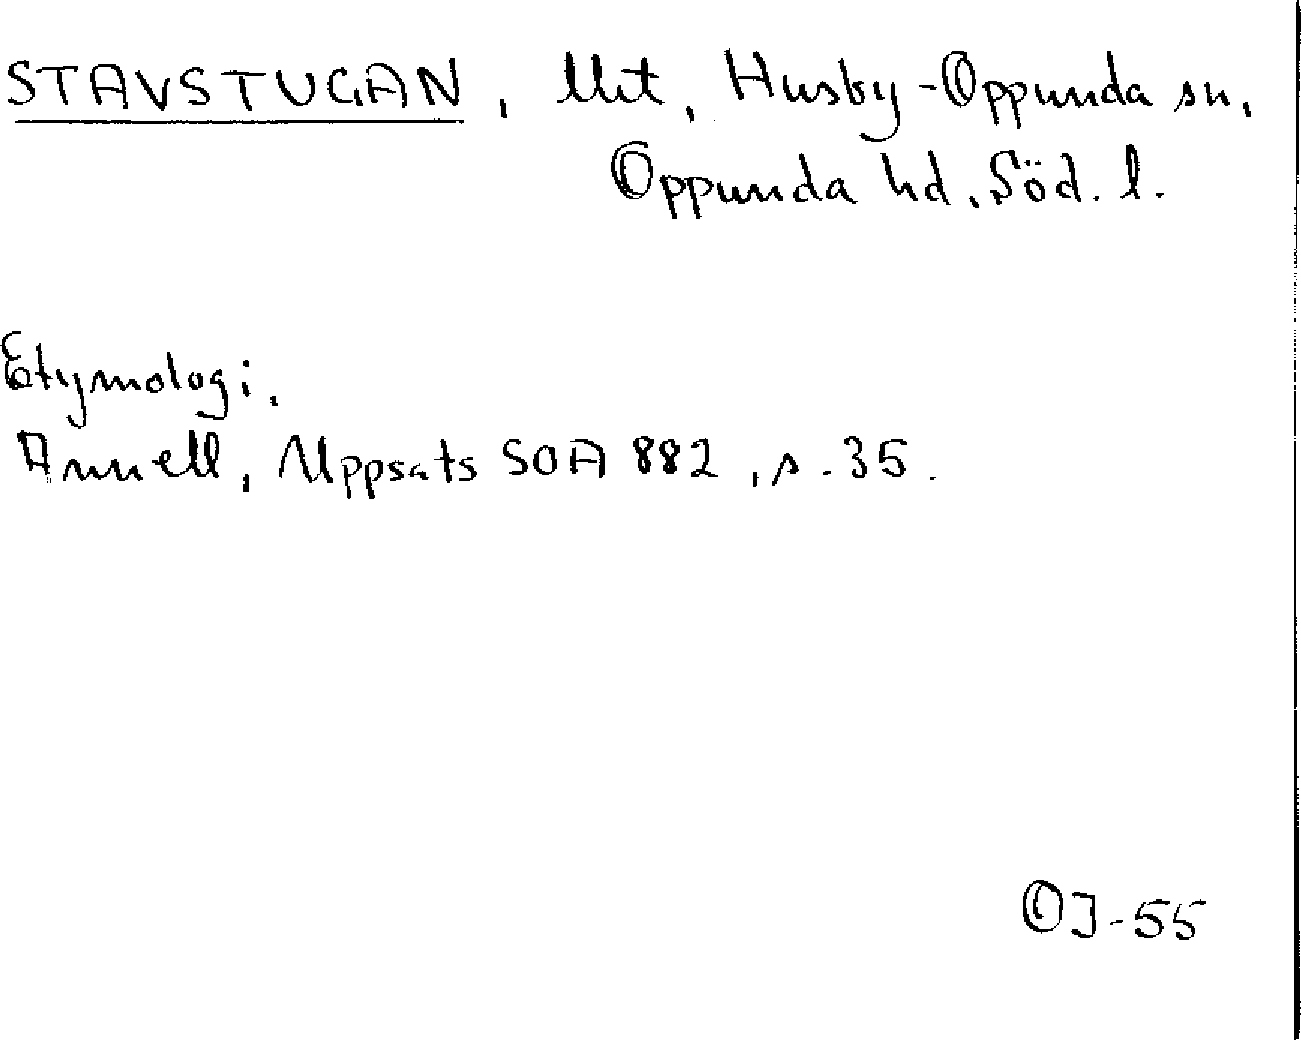 STAVSTUGAN, lht, Husby-Oppunda sn,
Oppunda hd, Söd. l.
Etymologi,
Annell, Uppsats SOA 882, s. 35.
OJ-55